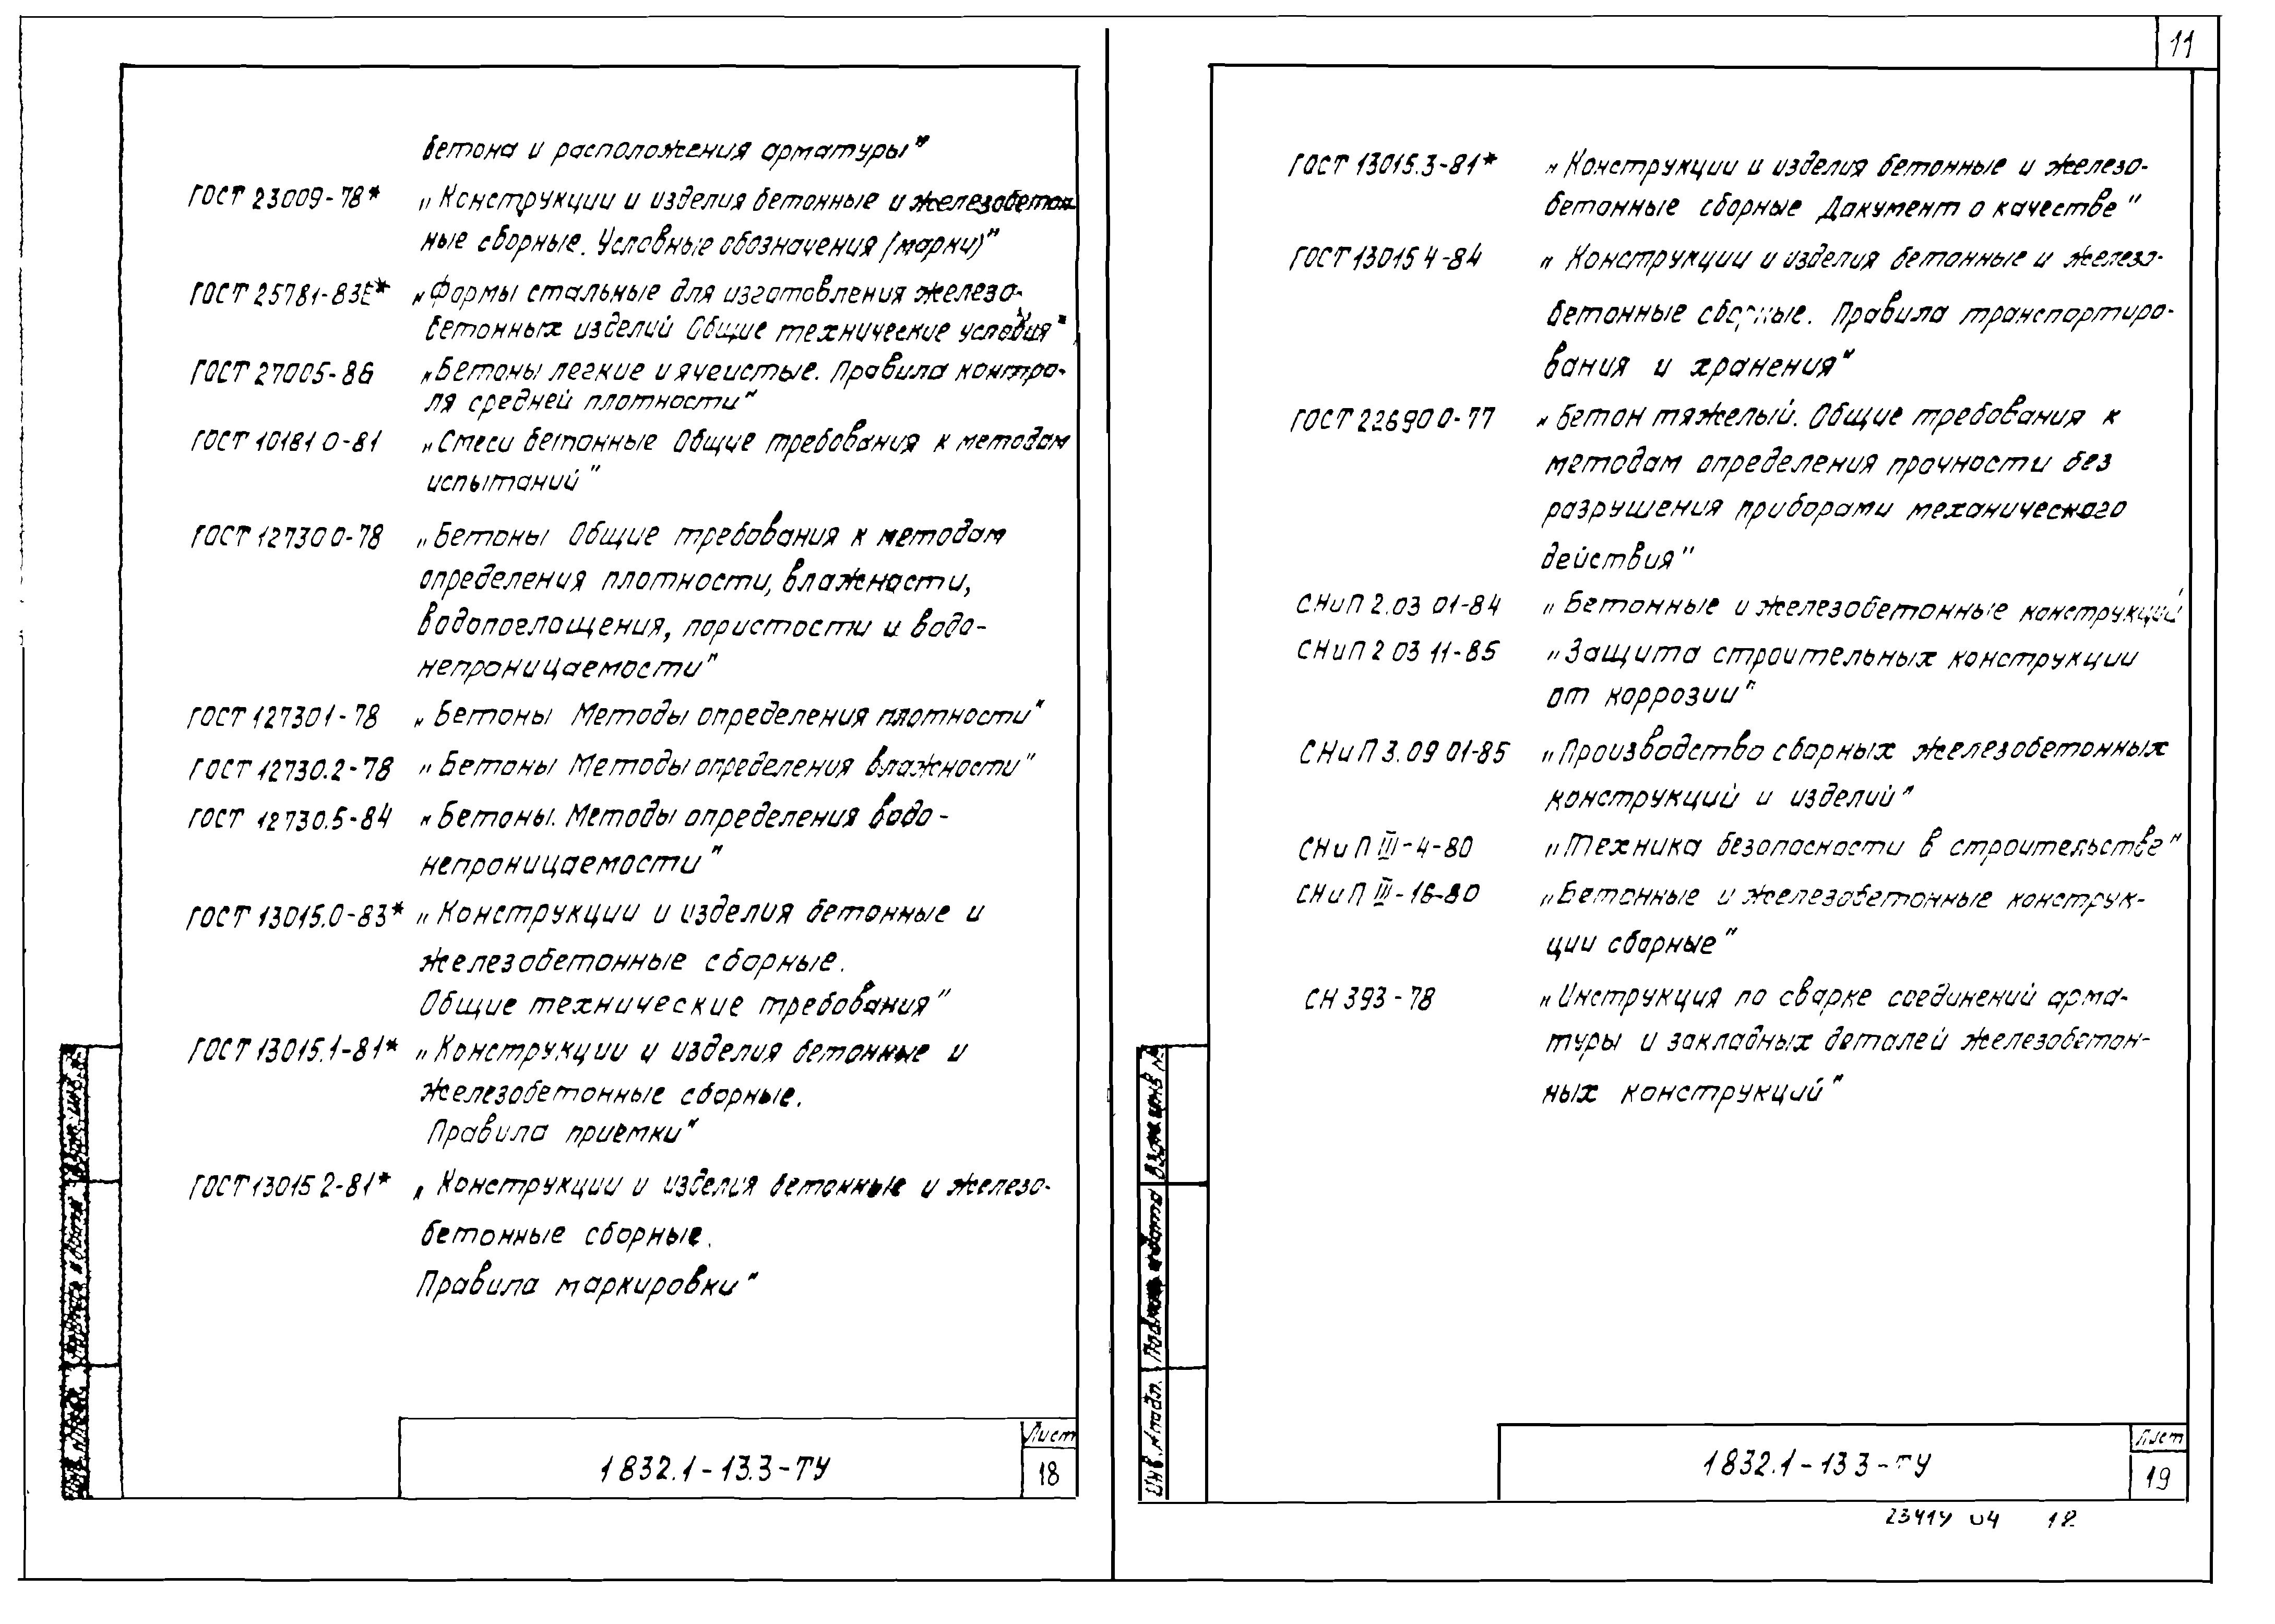 11
бетона и расположения арматуры"
ГОСТ 23009-78* „Конструкции и изделия бетонные и железобетон
ные сборные. Условные обозначения (марки)"
ГОСТ 25781-83Е* „Формы стальные для изготовления железо-
бетонных изделий Общие технические условия"
ГОСТ 27005-86 „Бетоны легкие и ячеистые. Правила контро-
ля средней плотности"
ГОСТ 10181 0-81 „Смеси бетонные Общие требования к методам
испытаний"
ГОСТ 12730 0-78 „Бетоны Общие требования к методам
определения плотности, влажности,
водопоглощения, пористости и водо-
непроницаемости"
ГОСТ 12730 1-78 „Бетоны Методы определения плотности"
ГОСТ 12730.2-78 „Бетоны Методы определения влажности"
ГОСТ 12730.5-84 „Бетоны. Методы определения водо-
непроницаемости"
ГОСТ 13015.0-83* „Конструкции и изделия бетонные и
железобетонные сборные.
Общие технические требования"
ГОСТ 13015.1-81* „Конструкции и изделия бетонные и
железобетонные сборные.
Правила приемки"
ГОСТ 13015 2-81* „Конструкции и изделия бетонные и железо-
бетонные сборные.
Правила маркировки"
1 832.1-13.3-ТУ
Лист
18
ГОСТ 13015.3-81* „Конструкции и изделия бетонные и железо-
бетонные сборные Документ о качестве"
ГОСТ 13015 4-84 „Конструкции и изделия бетонные и железо-
бетонные сборные. Правила транспортиро-
вания и хранения"
ГОСТ 22690 0-77 „Бетон тяжелый. Общие требования к
методам определения прочности без
разрушения приборами механического
действия"
СНиП 2.03 01-84 „Бетонные и железобетонные конструкции
СНиП 2 03 11-85 „Защита строительных конструкции
от коррозии"
СНиП 3.09 01-85 „Производство сборных железобетонных
конструкций и изделий"
СНиП III-4-80 „Техника безопасности в строительстве"
СНиП III-16-80 „Бетонные и железобетонные конструк-
ции сборные"
СН 393-78 „Инструкция по сварке соединений арма-
туры и закладных деталей железобетон-
ных конструкций"
Инв. № подл.
Подпись и дата
Взам. инв №
1 832.1-13 3-ТУ
Лист
19
23414 04 12